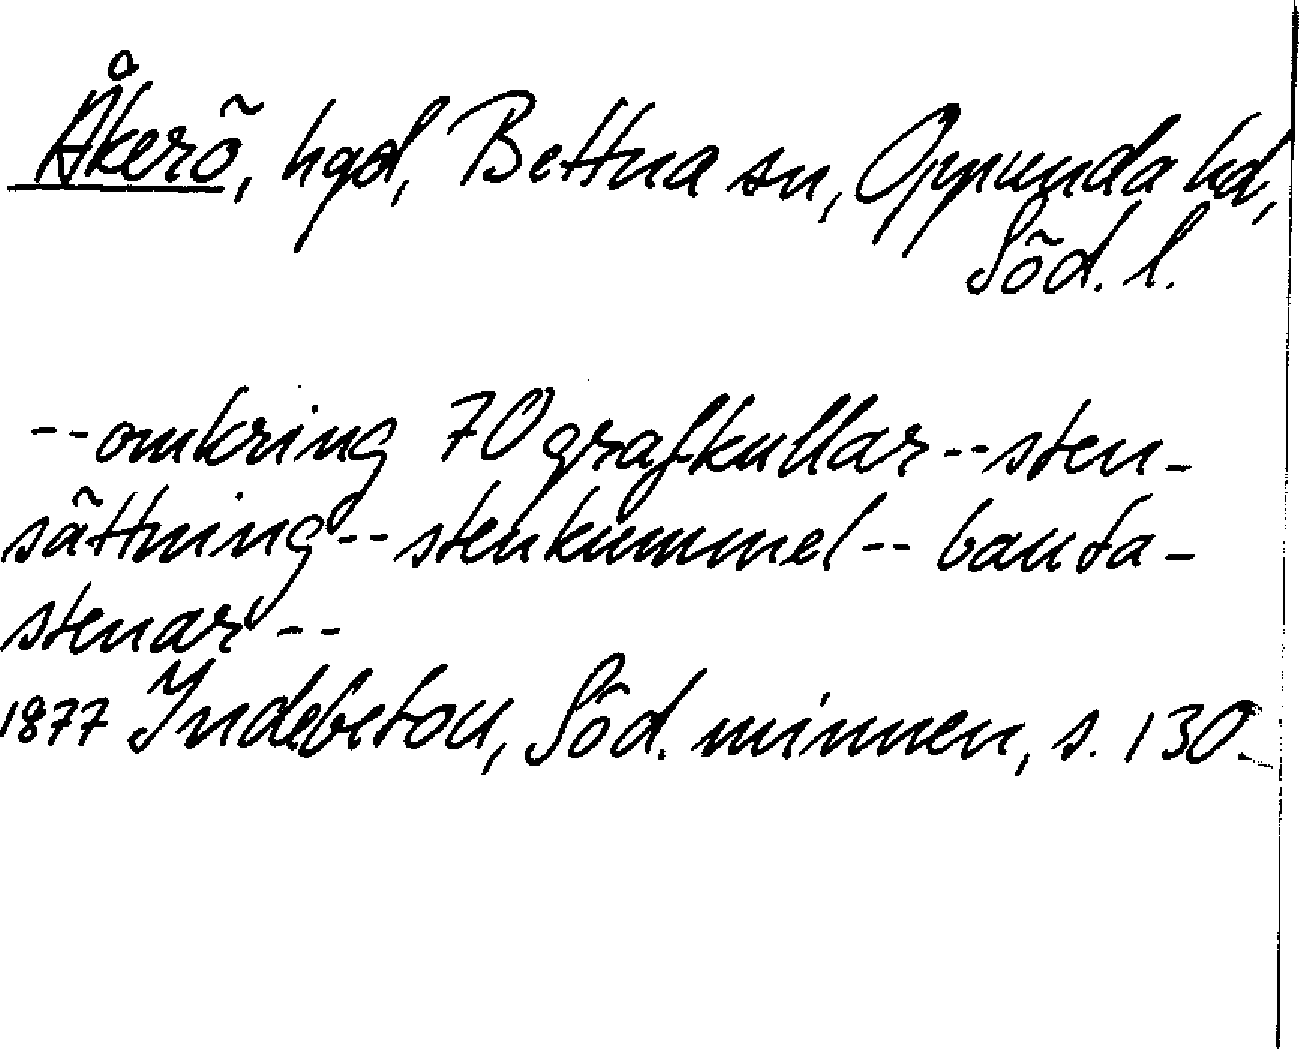 Åkerö, hgd, Bettna sn, Oppunda hd,
Söd. l.
--omkring 70 grafkullar--sten-
sättning--stenkummel--bauta-
stenar--
1877 Indebetou, Söd. minnen, s. 130.